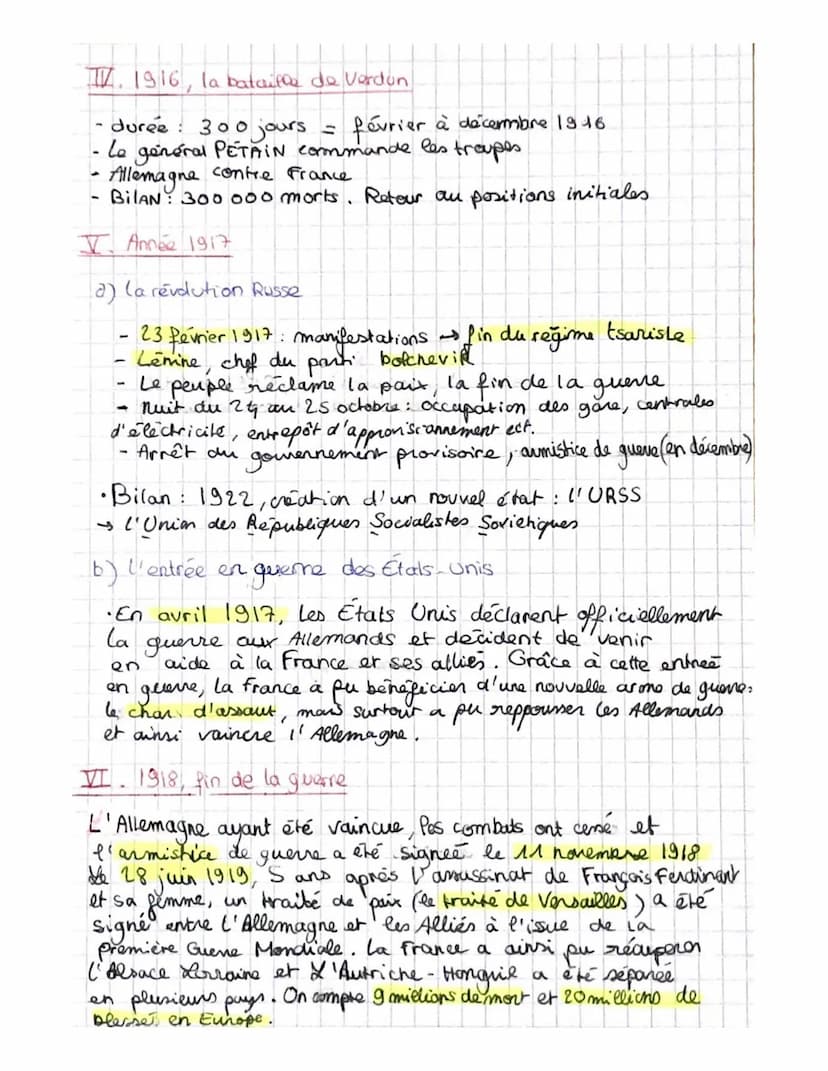 IV. 1916, la bataille de Verdun
- durée : 300 jours = février à décembre 1916
- Le général PETAIN commande les troupes
- Allemagne contre France
- BILAN : 300 000 morts. Retour au positions initiales
V. Année 1917
a) la révolution Russe
- 23 février 1917 : manifestations → fin du régime tsariste
- Lénine, chef du parti bolchevik
- Le peuple réclame la paix, la fin de la guerre
- Nuit du 24 au 25 octobre : occupation des gare, centrales
d'électricité, entrepôt d'approvisionnement ect.
- Arrêt du gouvernement provisoire, armistice de guerre (en décembre)
• Bilan : 1922, création d'un nouvel état : l'URSS
→ L'Union des Républiques Socialistes Soviétiques
b) L'entrée en guerre des États-Unis
• En avril 1917, Les États Unis déclarent officiellement
la guerre aux Allemands et décident de venir
en aide à la France et ses alliés. Grâce à cette entreé
en guerre, la France à pu bénéficier d'une nouvelle arme de guerre:
le char d'assaut, mais surtout a pu reppousser les Allemands
et ainsi vaincre l'Allemagne.
VI. 1918, fin de la guerre
L'Allemagne ayant été vaincue, les combats ont cessé et
l'armistice de guerre a été signeé le 11 novembre 1918
Le 28 juin 1919, 5 ans après l'assassinat de François Ferdinant
et sa femme, un traité de paix (le traité de Versailles) a été
signé entre L'Allemagne et les Alliés à l'issue de la
première Guerre Mondiale. La France a ainsi pu récuperer
l'Alsace Lorraine et l'Autriche-Hongrie a été séparée
en plusieurs pays. On compte 9 millions de mort et 20 millions de
blessés en Europe.